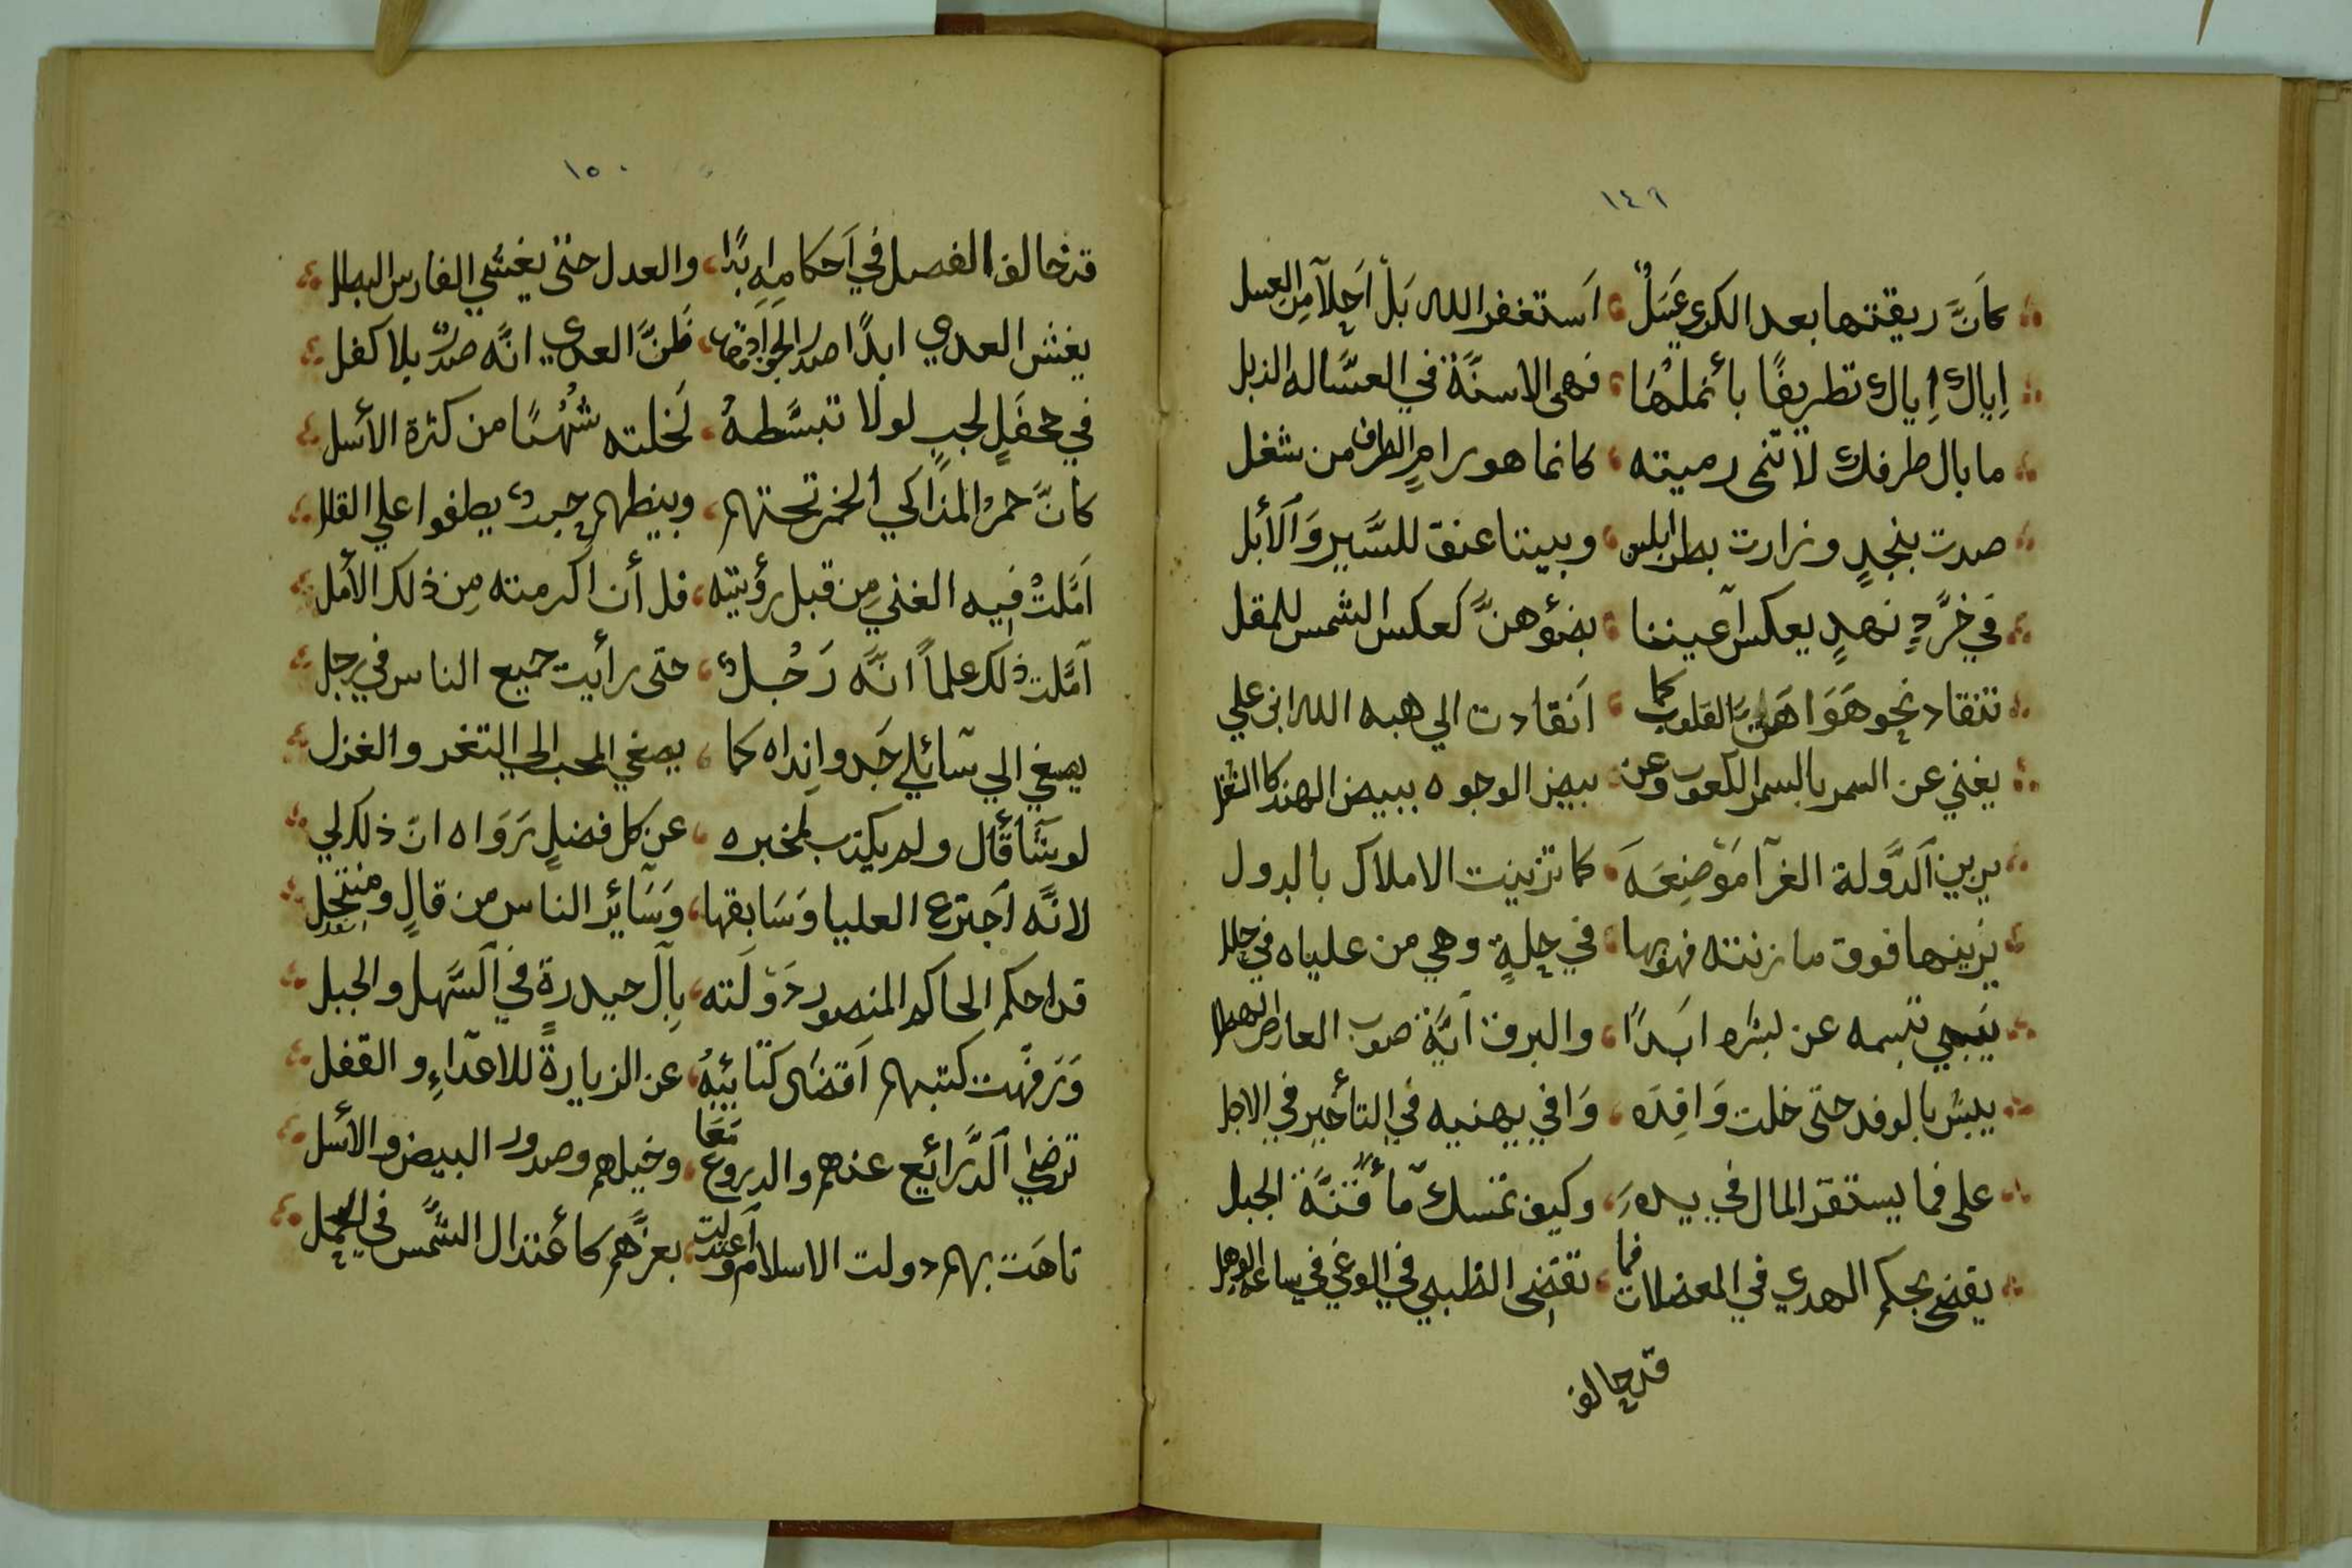 ١٤٩
كأنَّ ريقتها بعد الكري عَسَلٌ استغفر الله بَلْ اَحلآ مِن العسل
اِياك اِياك تطريفًا بأنملهَا فهى الاسنَّة في العسَّاله الذبل
ما بال طرفك لا تنمى رميته كانما هو رامٍ الطرف من شغل
صدت بنجدٍ وزارت بطرابلس وبيتنا عنق للسَّير وَالأبل
في خرَّدٍ نهدٍ يعكس اَعيننا بضؤهنَّ كعكس الشمس للمقل
تنقاد نحو هَوَاهَنَّ القلوب كما اَنقادت الي هبه الله ابن علي
يغني عن السمر بالسمر اللعوب وعن بيض الوجوه ببيض الهند كا
يزين اَلدَّولة الغرآ مَوْضِعَهَ كما تزينت الاملاك بالدول
يزينها فوق ما زنته فهو بها في حلةٍ وهي من علياه في حلل
ينبي تبسمه عن بشره ابَدًا والبرق اَيَّة صوب العارض الهطل
يبش بالوفد حتى خلت وَافِدَه وَافي يهنيه في التأخير في الاجل
على فما يستقر المال في يده وكيف تمسك مآ قنَّة الجبل
يقضى بحكم الهدي في المعضلات فما تقضى الظبى في الوغي في ساعة الوهل
قد خالف
١٥٠
قد خالف الفصل في اَحكامه اِبدًا والعدل حتى يغشي الفارس البطل
يغش العدي ابدًا صدر الجواد ظَنَّ العدي انَّه صدرٌ بلا كفل
في جحفلٍ لجبٍ لولا تبسَّطهُ لَخلته شُهْبًا من كثرة الأسل
كانَّ حمرُ المذاكي الخمر تحتهم وبينهم يطفوا علي القلل
اَمَّلتْ فيه الغني مِن قبل رؤيته فل أن اَكرمته مِن ذلك الأمل
اَمَّلت ذلك علماً انَّه رَجُلٌ حتى رأيت جميع الناس في رجل
يصغي الي سَائلي جَدواه اِنداه كما يصغي المحب الي التغر والغزل
لو شَاقَال ولم يكذب لمخبره عن كل فضلٍ تَرَوَاه انّ ذلك لي
لانَّه اَجترع العليا وَسَابقها وَسَائر الناس من قالٍ ومنتحل
قد احكم الحاكم المنصور دَوْلَته بآل حيدرةٍ في اَلسَّهل والجبل
وَرَفَّهت كتبهم اَقصَى كتَائبهُ عن الزيارةَ للاعدَاءِ والقفل
ترضي اَلذَّرائع عنهم والدروع مَعَا وخيلهم وصدور البيض والأسل
تاهَت بهم دولت الاسلام واَعتدلت بعزَّهم كأعتدال الشَّمس في الحمل